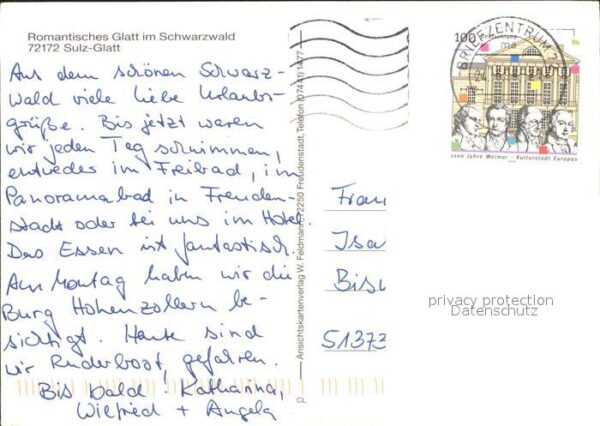 Romantisches Glatt im Schwarzwald
72172 Sulz-Glatt
Aus dem schönen Schwarz-
wald viele liebe Urlaubs-
grüße. Bis jetzt waren
wir jeden Tag schwimmen,
entweder im Freibad, im
Panoramabad in Freuden-
stadt oder bei uns im Hotel.
Das Essen ist fantastisch.
Am Montag haben wir die
Burg Hohenzollern be-
sichtigt. Heute sind
wir Ruderboot gefahren.
Bis bald Katharina,
Wilfried + Angela
Ansichtskartenverlag W. Feldmann, 72250 Freudenstadt, Telefon (07441) 1477
CL
BRIEFZENTRUM
100 Deutschland
1100 Jahre Weimar - Kulturstadt Europas
Frau
Isa
Bis
51373
privacy protection
Datenschutz